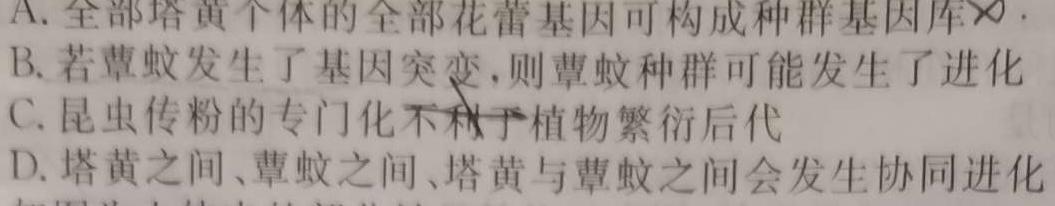 A. 全部塔黄个体的全部花蕾基因可构成种群基因库
B. 若蕈蚊发生了基因突变,则蕈蚊种群可能发生了进化
C. 昆虫传粉的专门化不利于植物繁衍后代
D. 塔黄之间、蕈蚊之间、塔黄与蕈蚊之间会发生协同进化